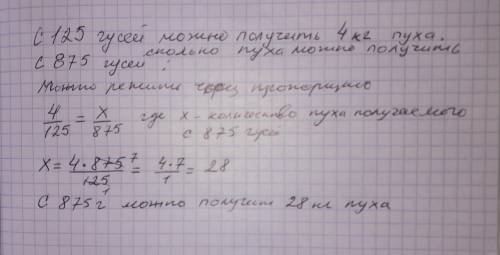 С 125 гусей можно получить 4 кг пуха.
сколько пуха можно получить
С 875 гусей ?
Можно решить через пропорцию
4/125 = x/875 где x - количество пуха получаемого
с 875 гусей
x = 4·875 7/125 1 = 4·7/1 = 28
С 875 г можно получить 28 кг пуха